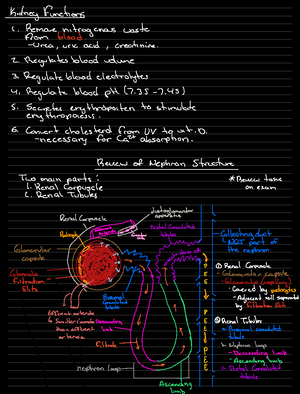 Kidney Functions
1. Remove nitrogenous waste
from blood
- Urea, uric acid, creatinine.
2. Regulates blood volume
3. Regulate blood electrolytes
4. Regulate blood pH (7.35-7.45)
5. Secretes erythropoiten to stimulate
erythropoiesis.
6. Convert cholesterol from UV to vit. D.
- necessary for Ca²⁺ absorption.
Review of Nephron Structure
Two main parts:
1. Renal Corpuscle
2. Renal Tubules
* Review these
on exam
Renal Corpuscle
Juxtaglomerular
apparatus
Distal Convoluted
tubule
Glomerular
capsule
Glomerulus
Filtration
Slits
Efferent arteriole
↳ Smaller
than afferent
arteriole
Proximal
Convoluted
tubule
Descending
limb
Filtrate
nephron loop
Ascending
limb
Collecting duct
(NOT part of
the nephron
① Renal Corpuscle
- Glomerular capsule
- Glomerulus (capillary)
- Covered by podocytes
- Adjacent cell separated
by filtration slits
② Renal Tubules
- Proximal convoluted
tubule
- Nephron loop
- Descending limb
- Ascending limb
- Distal Convoluted
tubule